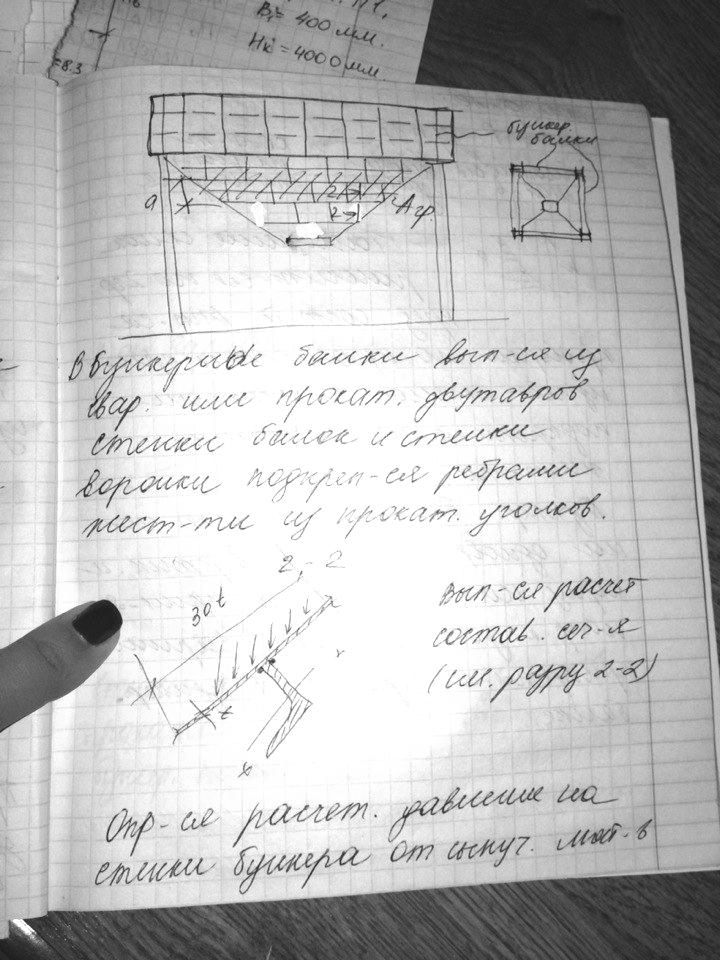 В₁= 400 мм.
Нк = 4000 мм.
=8.3
бункер.
балки
а
2
2
Агр.
Бункерные балки вып-ся из
свар. или прокат. двутавров
стенки балок и стенки
воронки подкреп-ся ребрами
жест-ти из прокат. уголков.
2 - 2
30t
Вып-ся расчет
состав. сеч-я
(см. разру 2-2)
t
x
x
Опр-ся расчет. давление на
стенки бункера от сыпуч. мат-в